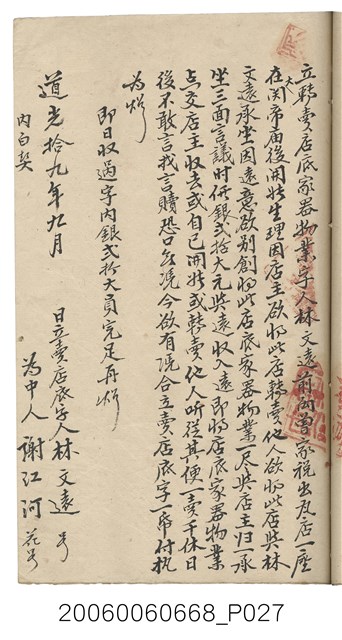 立轉賣店底家器物業字人林文遠前向曾家稅出瓦店一座
在大関帝庙後開張生理因店主欲將此店轉賣他人欲將此店與林
文遠承坐因遠意欲別創將此店底家器物業一尽與店主歸一承
坐三面言議時価銀弍拾大元與遠收入遠即將店底家器物業
点交店主收去或自己開張或轉賣他人听從其便一賣千休日
後不敢言找言贖恐口無凴今欲有凴合立賣店底字一帋付執
為炤
即日收過字內銀弍拾大員完足再炤
道光拾九年九月 日立賣店底字人林文遠 号
內白契
為中人謝江河 花号
20060060668_P027